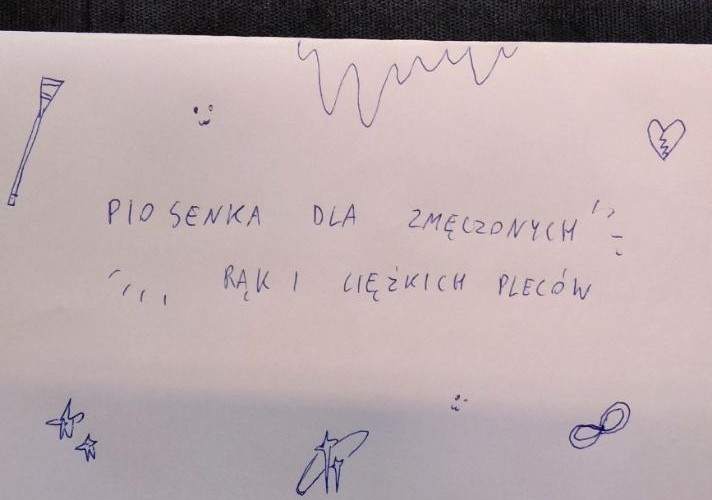 PIOSENKA DLA ZMĘCZONYCH
RĄK I CIĘŻKICH PLECÓW